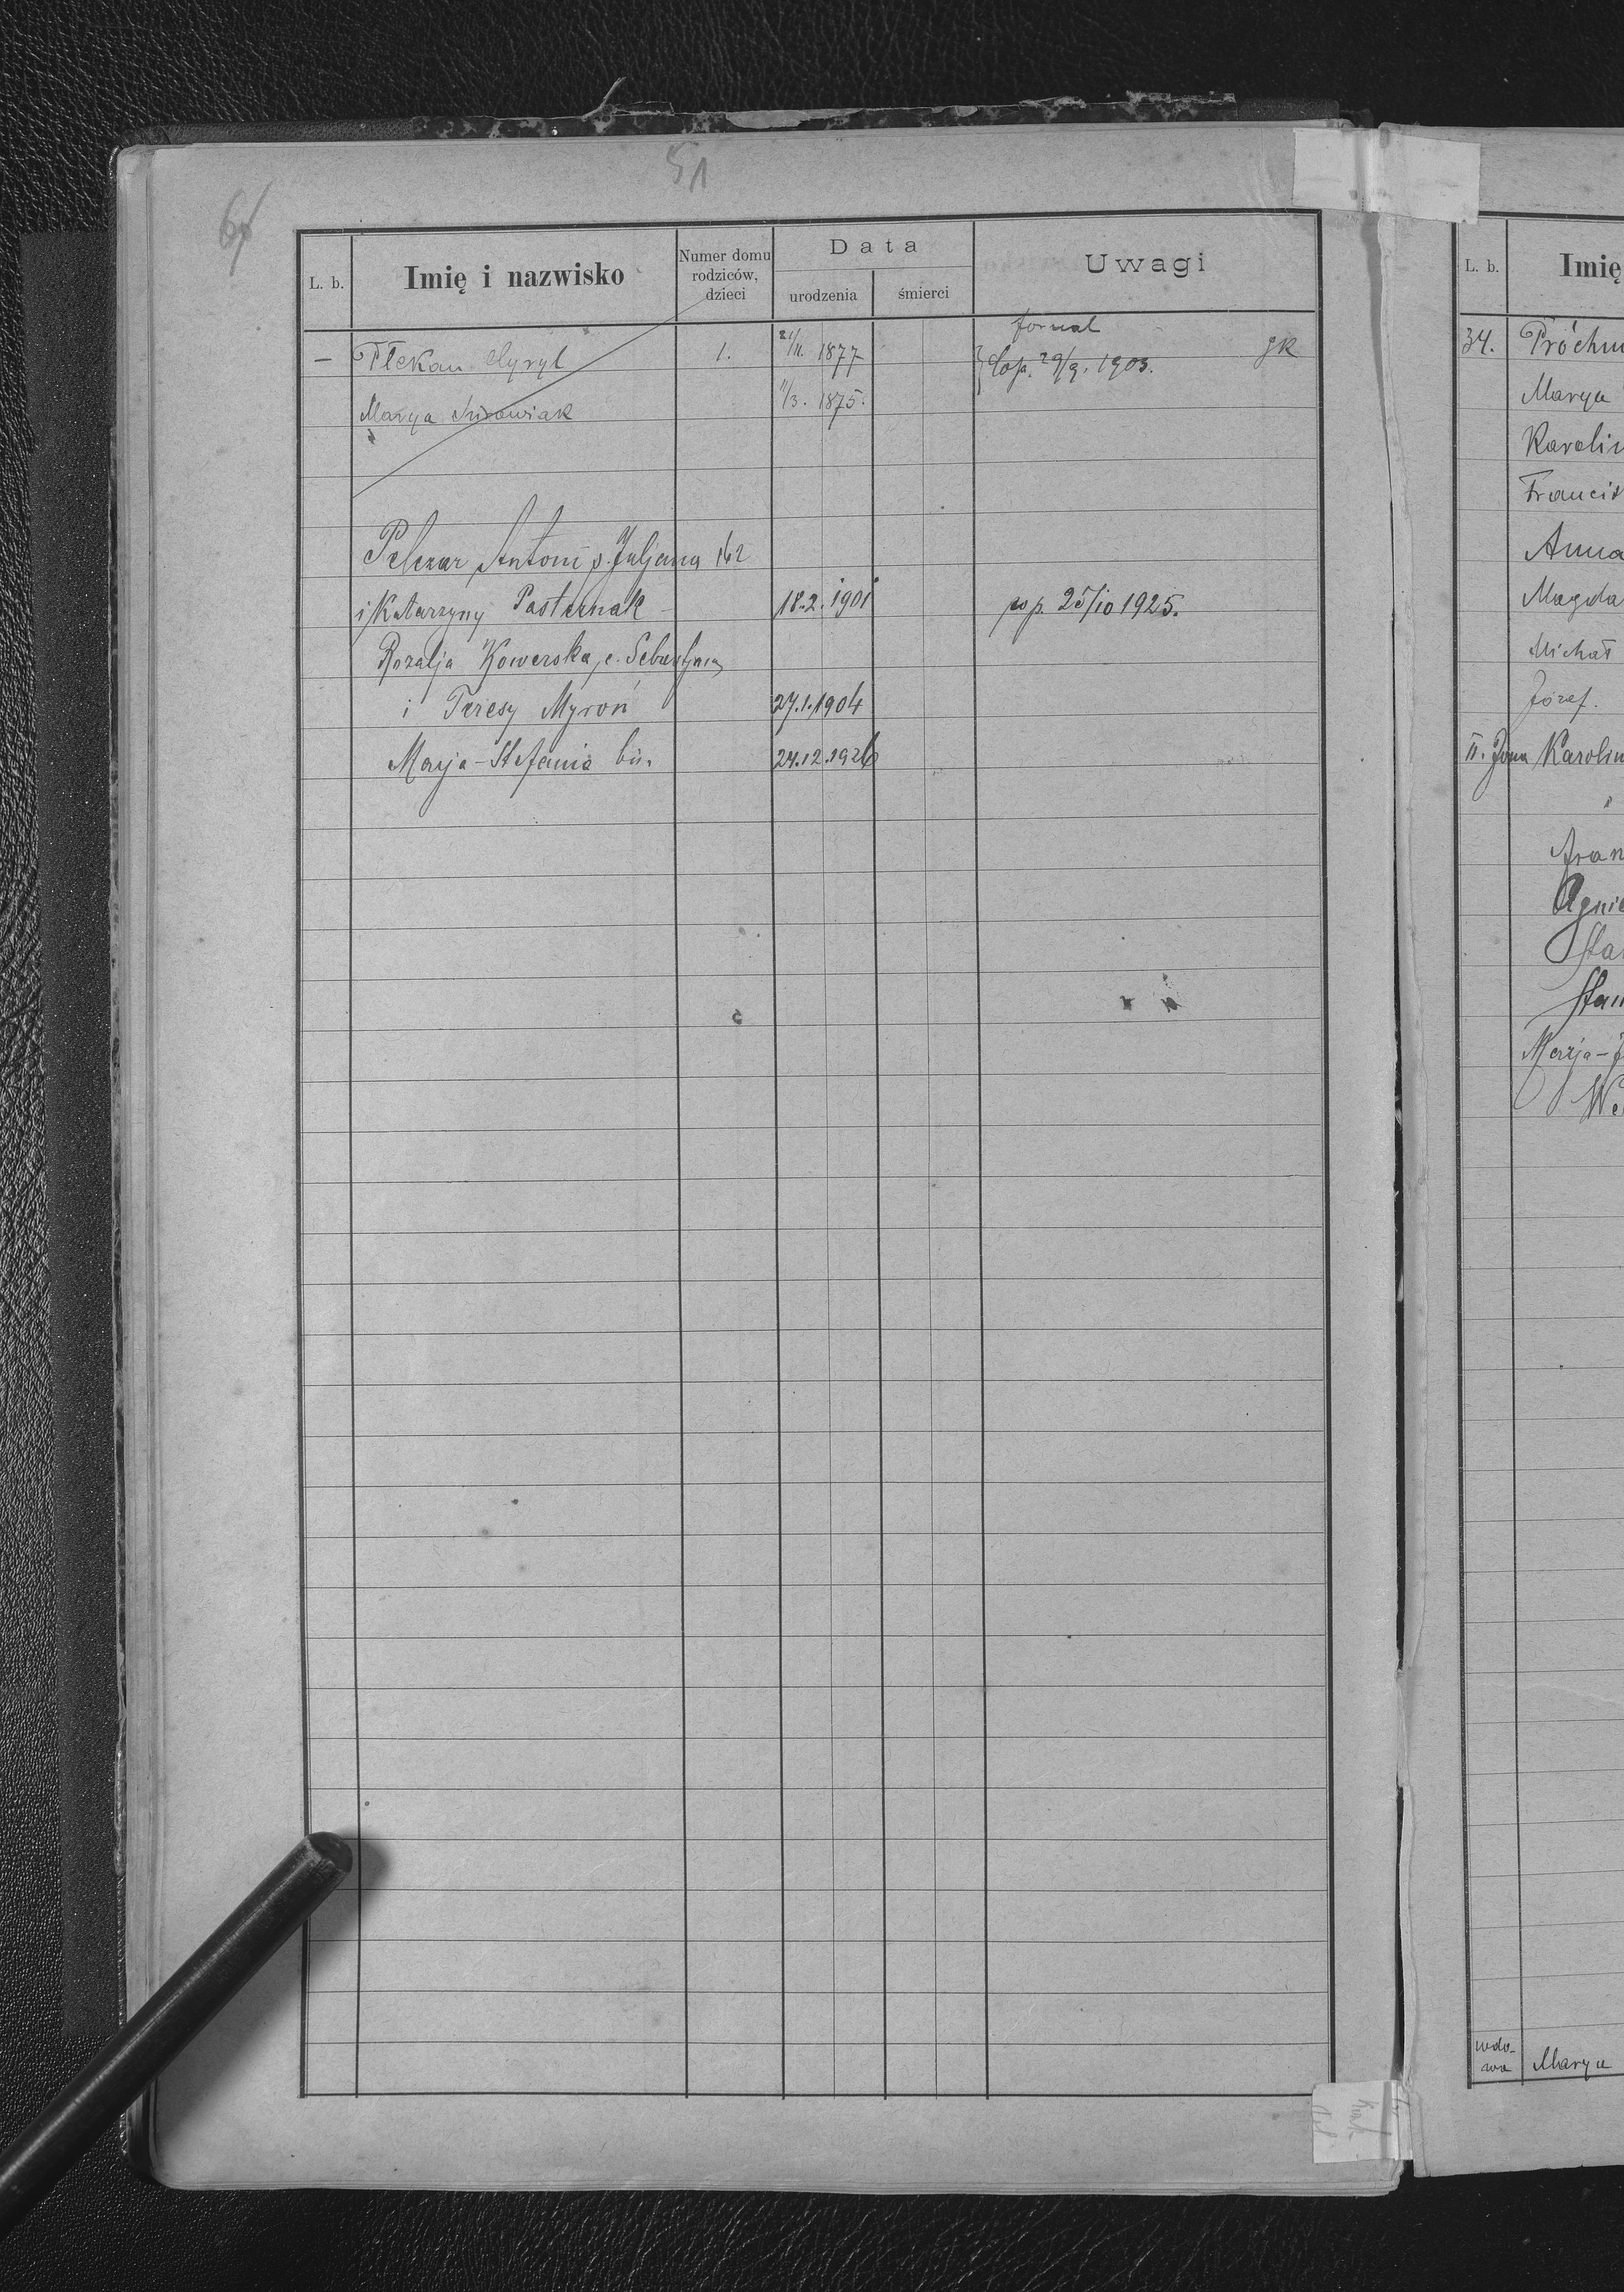 51
67
L. b. Imię i nazwisko Numer domu rodziców, dzieci Data urodzenia śmierci Uwagi
fornal
– Płekan Cyryl 1. 21/11. 1877 Cop. 29/9. 1903. gk
Marya 11/3. 1875.
Pelczar Antoni s. Juljana 162
i Katarzyny Pasternak 18.2.1901 pop. 25/10 1925.
Rozalja Kowerska, c. Sebastjana
i Teresy Myroń 27.1.1904
Marja-Stefania bii. 24.12.1926
L. b. Imię
34. Próchn
Marya
Karolin
Francis
Anna
Magda
Michał
Józef.
II. żona Karolin
"
Fran
Agnie
Sta
Stan
Marja-J
We
wdo-
wa Marya